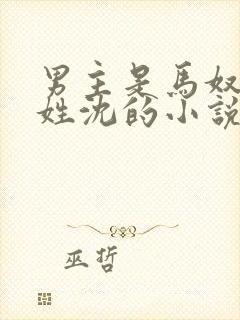 男主是馬奴
姓沈的小說
巫哲